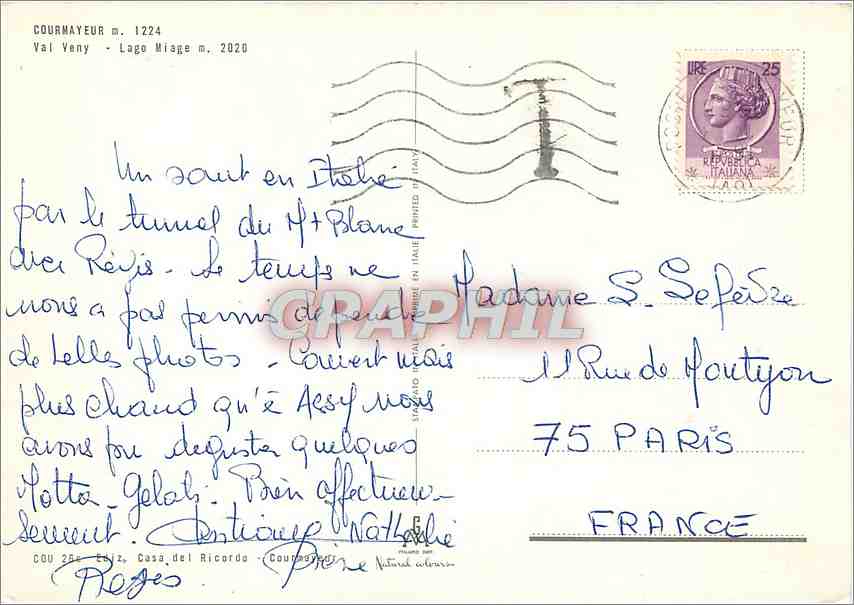 COURMAYEUR m. 1224
Val Veny - Lago Miage m. 2020
T
LIRE 25
REPVBBLICA
ITALIANA
Un saut en Italie
par le tunnel du Mt Blanc
avec Régis - Le temps ne
nous a pas permis de prendre
de belles photos - Couvert mais
plus chaud qu'à Assy nous
avons pu deguster quelques
Motta - Gelati. Bien affectueu-
sement. Nathalie
Régis Pierre
COU 26 Ediz. Casa del Ricordo - Courmayeur
STAMPATO IN ITALIA IMPRIMÉ EN ITALIE PRINTED IN ITALY
Natural colours
Madame S. Lefèbre
11 Rue de Montyon
75 PARIS
FRANCE
CPAPHIL